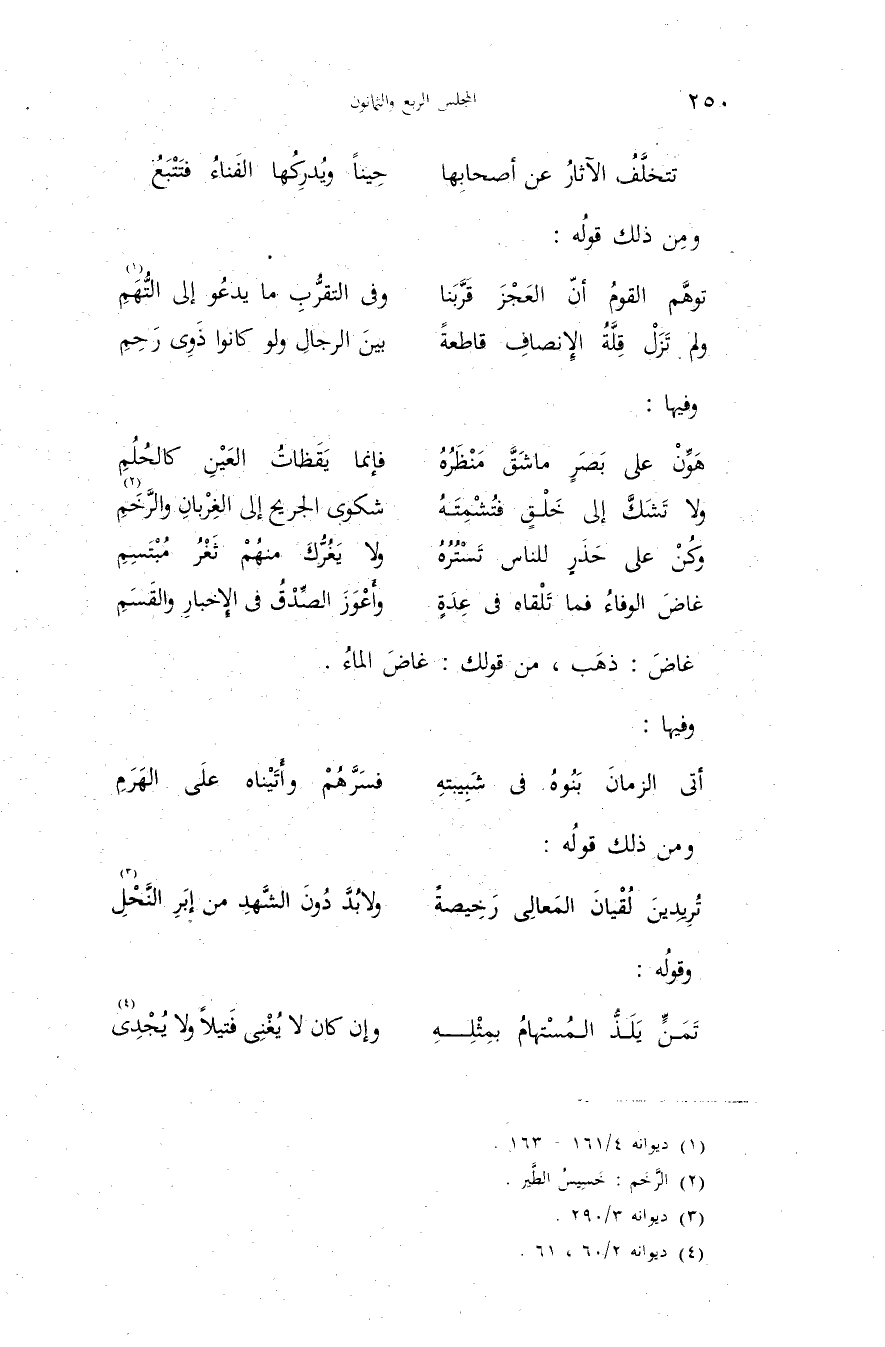 ٢٥٠ المجلس الربع والثمانون
تتخلَّفُ الآثارُ عن أصحابِها حِيناً ويُدرِكُها الفَناءُ فتَتْبَعُ
ومِن ذلك قولُه :
توهَّم القومُ أنّ العَجْزَ قَرَّبَنا وفى التقرُّبِ ما يدعُو إلى التُّهَمِ (١)
ولم تَزَلْ قِلَّةُ الإِنصافِ قاطعةً بينَ الرجالِ ولو كانوا ذَوِى رَحِمِ
وفيها :
هَوِّنْ على بَصَرٍ ماشَقَّ مَنْظَرُهُ فإنما يَقَظاتُ العَيْنِ كالحُلُمِ
ولا تَشَكَّ إلى خَلْقٍ فتُشْمِتَهُ شكوى الجريحِ إلى الغِرْبانِ والرَّخَمِ (٢)
وكُنْ على حَذَرٍ للناس تَسْتُرُهُ ولا يَغُرُّكَ منهُمْ ثَغْرُ مُبْتَسِمِ
غاضَ الوفاءُ فما تَلْقاه فى عِدَةٍ وأَعْوَزَ الصِّدْقُ فى الإِخبارِ والقَسَمِ
غاضَ : ذهَب ، من قولك : غاضَ الماءُ .
وفيها :
أتى الزمانَ بَنُوهُ فى شَبِيبتهِ فسَرَّهُمْ وأَتَيْناه علَى الهَرَمِ
ومن ذلك قولُه :
تُرِيدِينَ لُقْيانَ المَعالِى رَخِيصةً ولابُدَّ دُونَ الشَّهدِ من إبَرِ النَّحْلِ (٣)
وقولُه :
تَمَنٍّ يَلَذُّ المُسْتهامُ بمِثْلِهِ وإن كان لا يُغْنِى فَتيلاً ولا يُجْدِى (٤)
(١) ديوانه ١٦١/٤ - ١٦٣ .
(٢) الرَّخَم : خَسِيسُ الطَّير .
(٣) ديوانه ٢٩٠/٣ .
(٤) ديوانه ٦٠/٢ ، ٦١ .